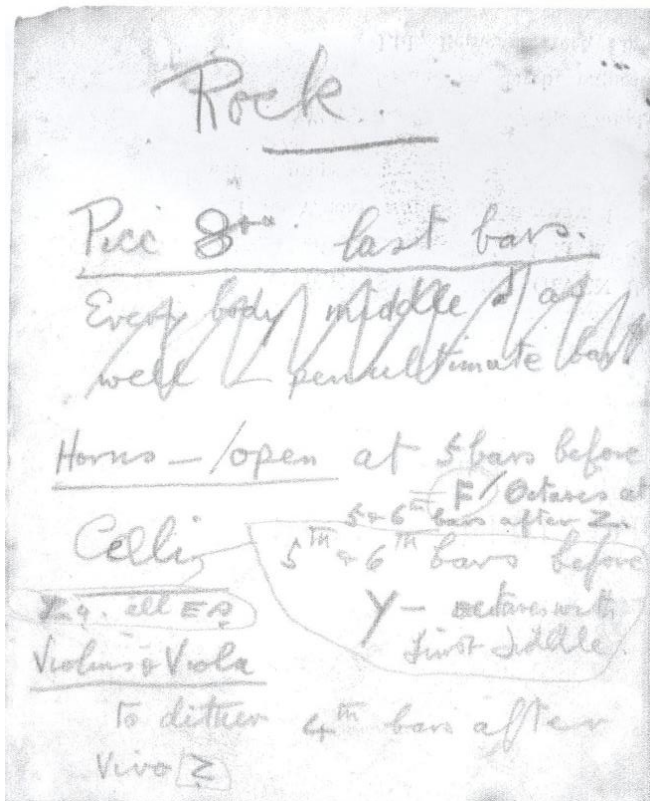 Rock.
Picc 8va last bars.
Every body middle as
well – penultimate bar.
Horns – open at 5 bars before
F Octaves at
5 + 6th bars after Z.
Celli 5th + 6th bars before
Y – octaves with
first fiddle.
all
Violins & Viola
to dither 4th bars after
Vivo Z